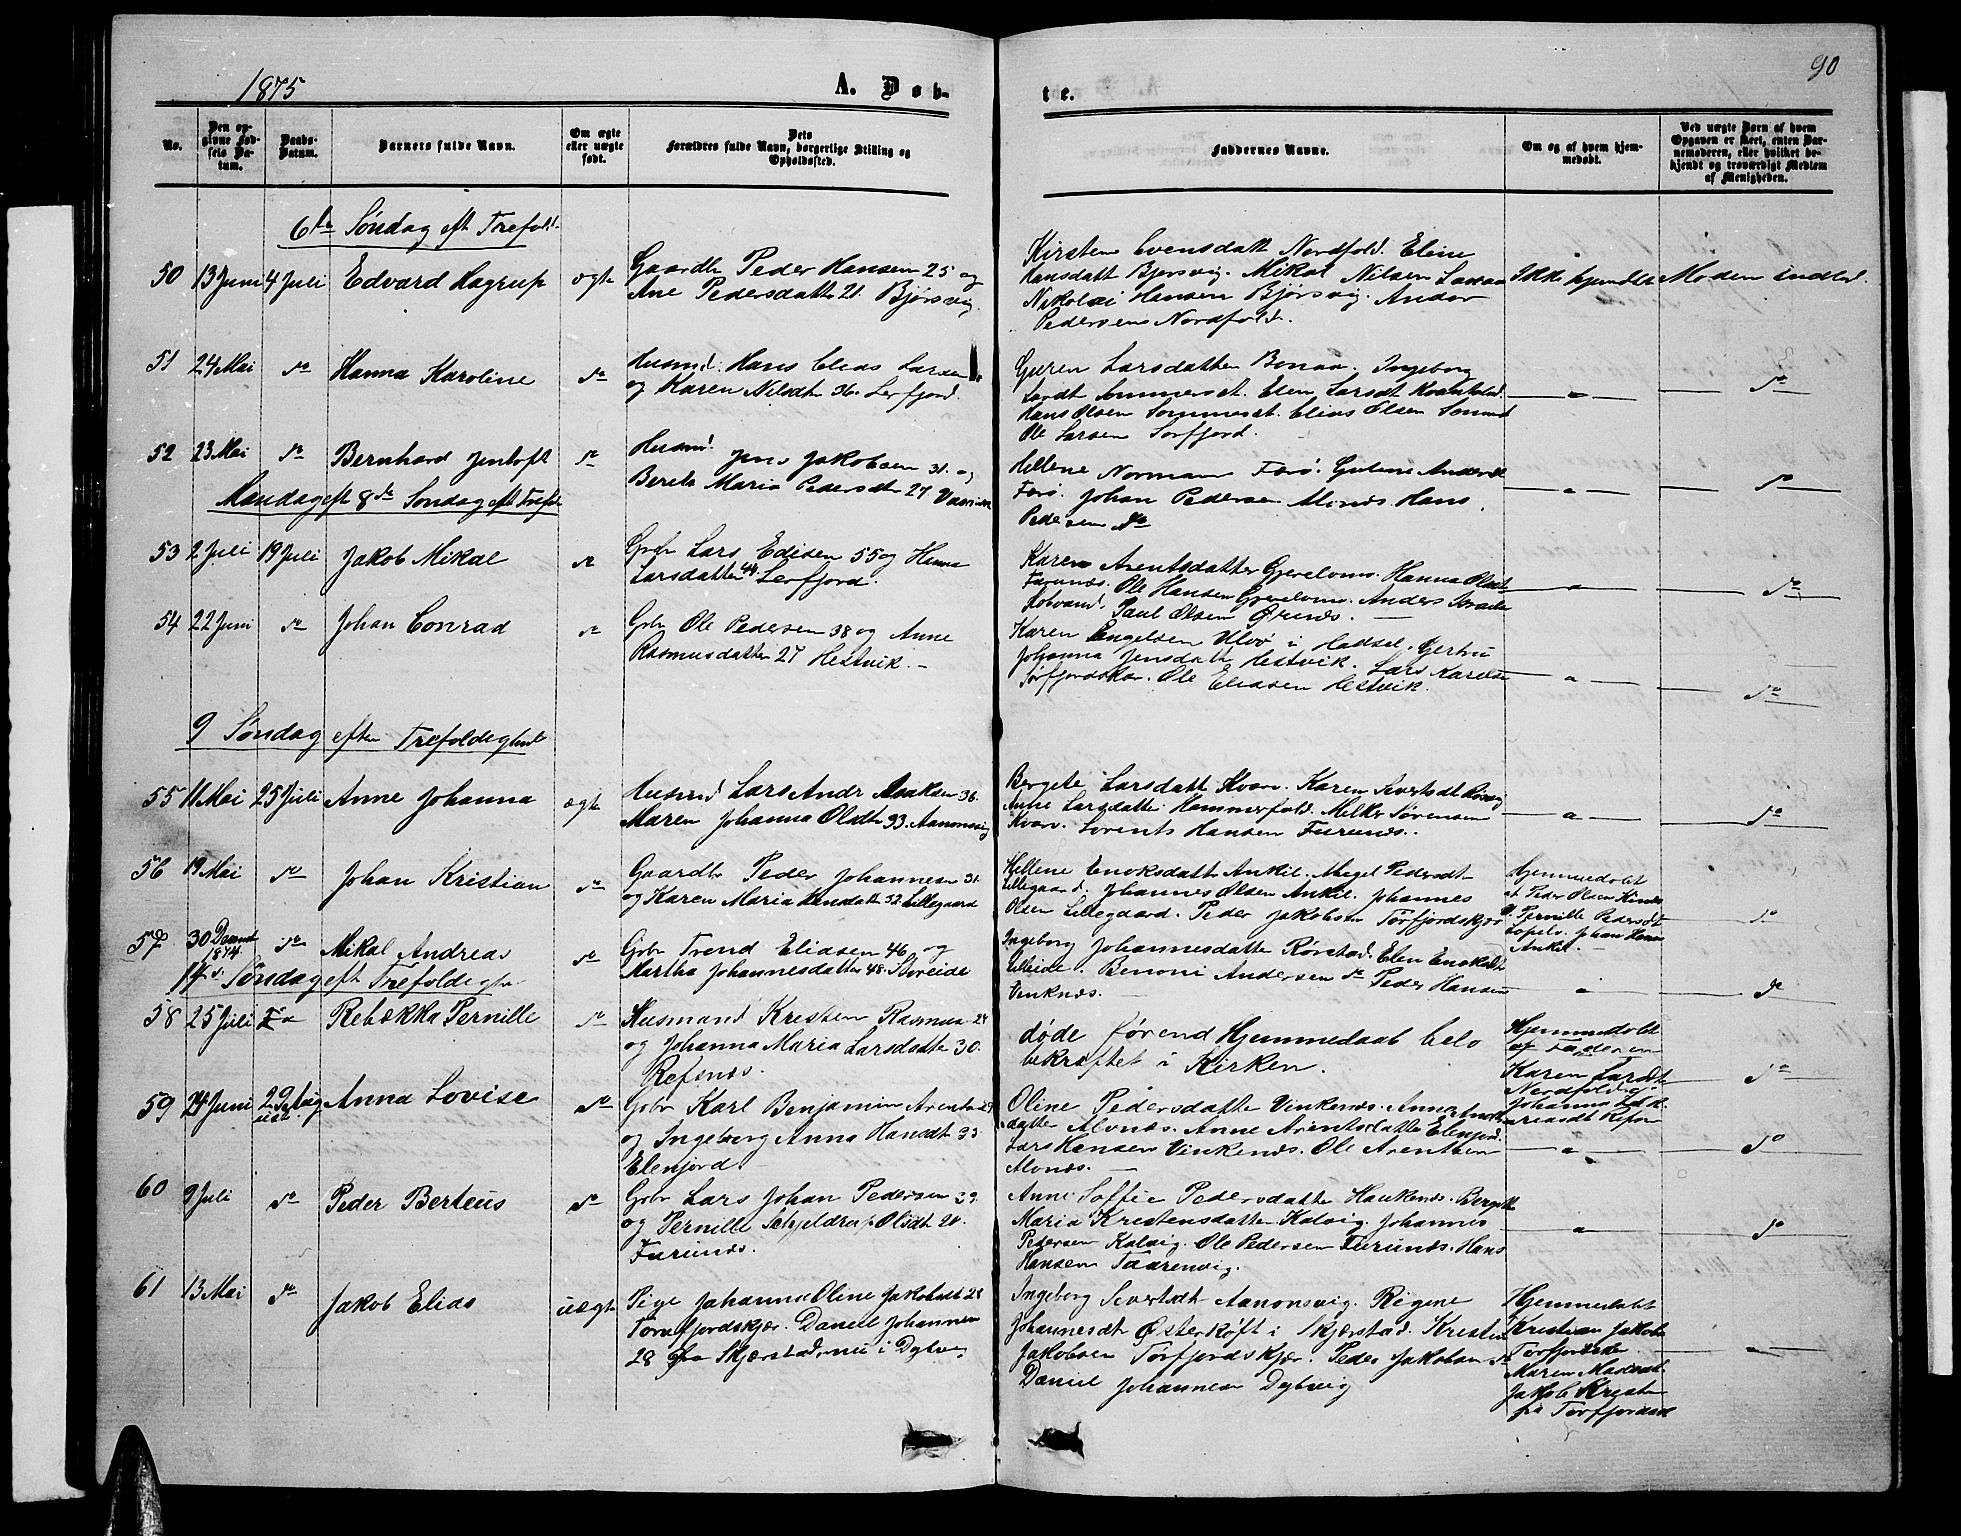 1875
A. Døb-
te.
90
No.
Den opgivne Fødsels Datum.
Daabs-Datum.
Barnets fulde Navn.
Om ægte eller uægte født.
Dets Forældres fulde Navn, borgerlige Stilling og Opholdssted.
Faddernes Navne.
Om og af hvem hjemmedøbt.
Ved uægte Børn af hvem Opgaven er skeet, enten Barnemoderen, eller hvilket bekjendt og troværdigt Medlem af Menigheden.
6te Søndag eft Trefold.
50 13 Juni 4 Juli Edvard Hagrup ægte
Gaardb Peder Hansen 25 og
Ane Pedersdatter 21. Bjørsvig
Kirsten Evensdatt Nordfold. Eline
Hansdatt Bjørsvig. Mikal Nilsen
Nikolai Hansen Bjørsvig. Andor
Pedersens Nordfold.
Ikke hjemdøbt
51 24 Mai do Hanna Karoline do
Husmd. Hans Elias Larsen
og Karen Nilsdtr 36. Lerfjord.
Guren Larsdatter Bonaa. Ingeborg
Larsdt Sommerset. Elen Larsdt
Hans Olsen Sommerset. Elias Olsen
Ole Larsen Sørfjord.
do
52 23 Mai do Bernhard Jentoft do
Husmd. Jens Jakobsen 31. og
Berete Maria Pedersdtr 27
Hellene Normann Førø.
Førø. Johan Pedersen Alnæs Hans
Pedersen do
do
Mandag eft 8de Søndag eft Trefold
53 2 Juli 19 Juli Jakob Mikal do
Grbr Lars Edisen 55 og Hanna
Larsdatter 44. Lerfjord.
Karen Arentsdatter Gjerelvnes. Hanna
Furunæs. Ole Hansen Gjerelvnes. Anders
Paul Olsen Ørenæs.
do
54 22 Juni do Johan Conrad do
Grbr Ole Pedersen 38 og Anne
Rasmusdatter 27 Hestvik.
Karen Engelsen Ulvø i Hadsel.
Johanna Jensdatt Hestvik. Lars
Sørfjordskar. Ole Eliasen Hestvik.
do
9 Søndag efter Trefoldighed
55 11 Mai 25 Juli Anne Johanna ægte
Husmd Lars Andr Isaksen 36.
Maren Johanna Olsdtr 33. Aanonsvig
Bergete Larsdatt Kvarv. Karen Sivertsdt
Anne Larsdatter Hammerfald. Melker Sørensen
Kvarv. Lorents Hansen Furunæs.
do
56 19 Mai do Johan Kristian do
Gaardbr Peder Johannesen 31
og Karen Maria Hansdatt 32 Lillegaard
Hellene Enoksdatt Ankil. Magel Pedersdt
Lillegaard. Johannes Olsen Ankil. Johannes
Olsen Lillegaard. Peder Jakobsen Torfjordskjær
Hjemmedøbt
af Peder Olsen
Pernille Pedersdt
Johan Hansen
Ankil.
do
57 30 Decemb 1874. do Mikal Andreas do
Grbr Trond Eliasen 46 og
Martha Johannesdatter 48.
Ingeborg Johannesdatter Rørstad. Elen Enoksdt
Benoni Andersen do Peder Hansen
Vinknæs.
do
14. S. Søndag eft Trefoldighe.
58 25 Juli Rebekka Pernille do
Husmand Kristen Rasmus. 24
og Johanna Maria Larsdatter 30.
Refsnæs.
døde førend Hjemmedaab blev
bekræftet i Kirken.
Hjemmedøbt
af Faderen
Karen Larsdt
Nordfold og
Johanna
do
59 24 Juni 29 Aug Anna Lovise do
Grbr Karl Benjamin Arents 29
og Ingeborg Anna Hansdt 33.
Elenjord
Oline Pedersdatter Vinkenæs. Anne
datter Alvnæs. Anne Arentsdatter Elenjord.
Lars Hansen Vinkenæs. Ole Arentsen
Alvnæs.
do
60 9 Juli do Peder Berteus do
Grbr Lars Johan Pedersen 39.
og Pernille Schjeldrup Olsdt 20.
Furunæs.
Anne Soffie Pedersdatter Haukenæs. Bergitt
Maria Kristensdatter Kalvig. Johannes
Pedersen Kalvig. Ole Pedersen Furunæs. Hans
Hansen Taarenvig.
do
61 13 Mai do Jakob Elias uægte
Pige Johanna Oline Jakobsdt 28
Torrfjordskjær. Daniel Johannesen
28 fra Skjærstad, nu i Dybvig
Ingeborg Sivertsdt Aanonsvig. Regine
Johannesdt Østerkløft i Skjærstad. Kristen
Jakobsen Torfjordskjær. Peder Jakobsen do
Daniel Johannesen Dybvig
Hjemmedøbt
Kristian Jakobs
Maren
Jakob Kristen